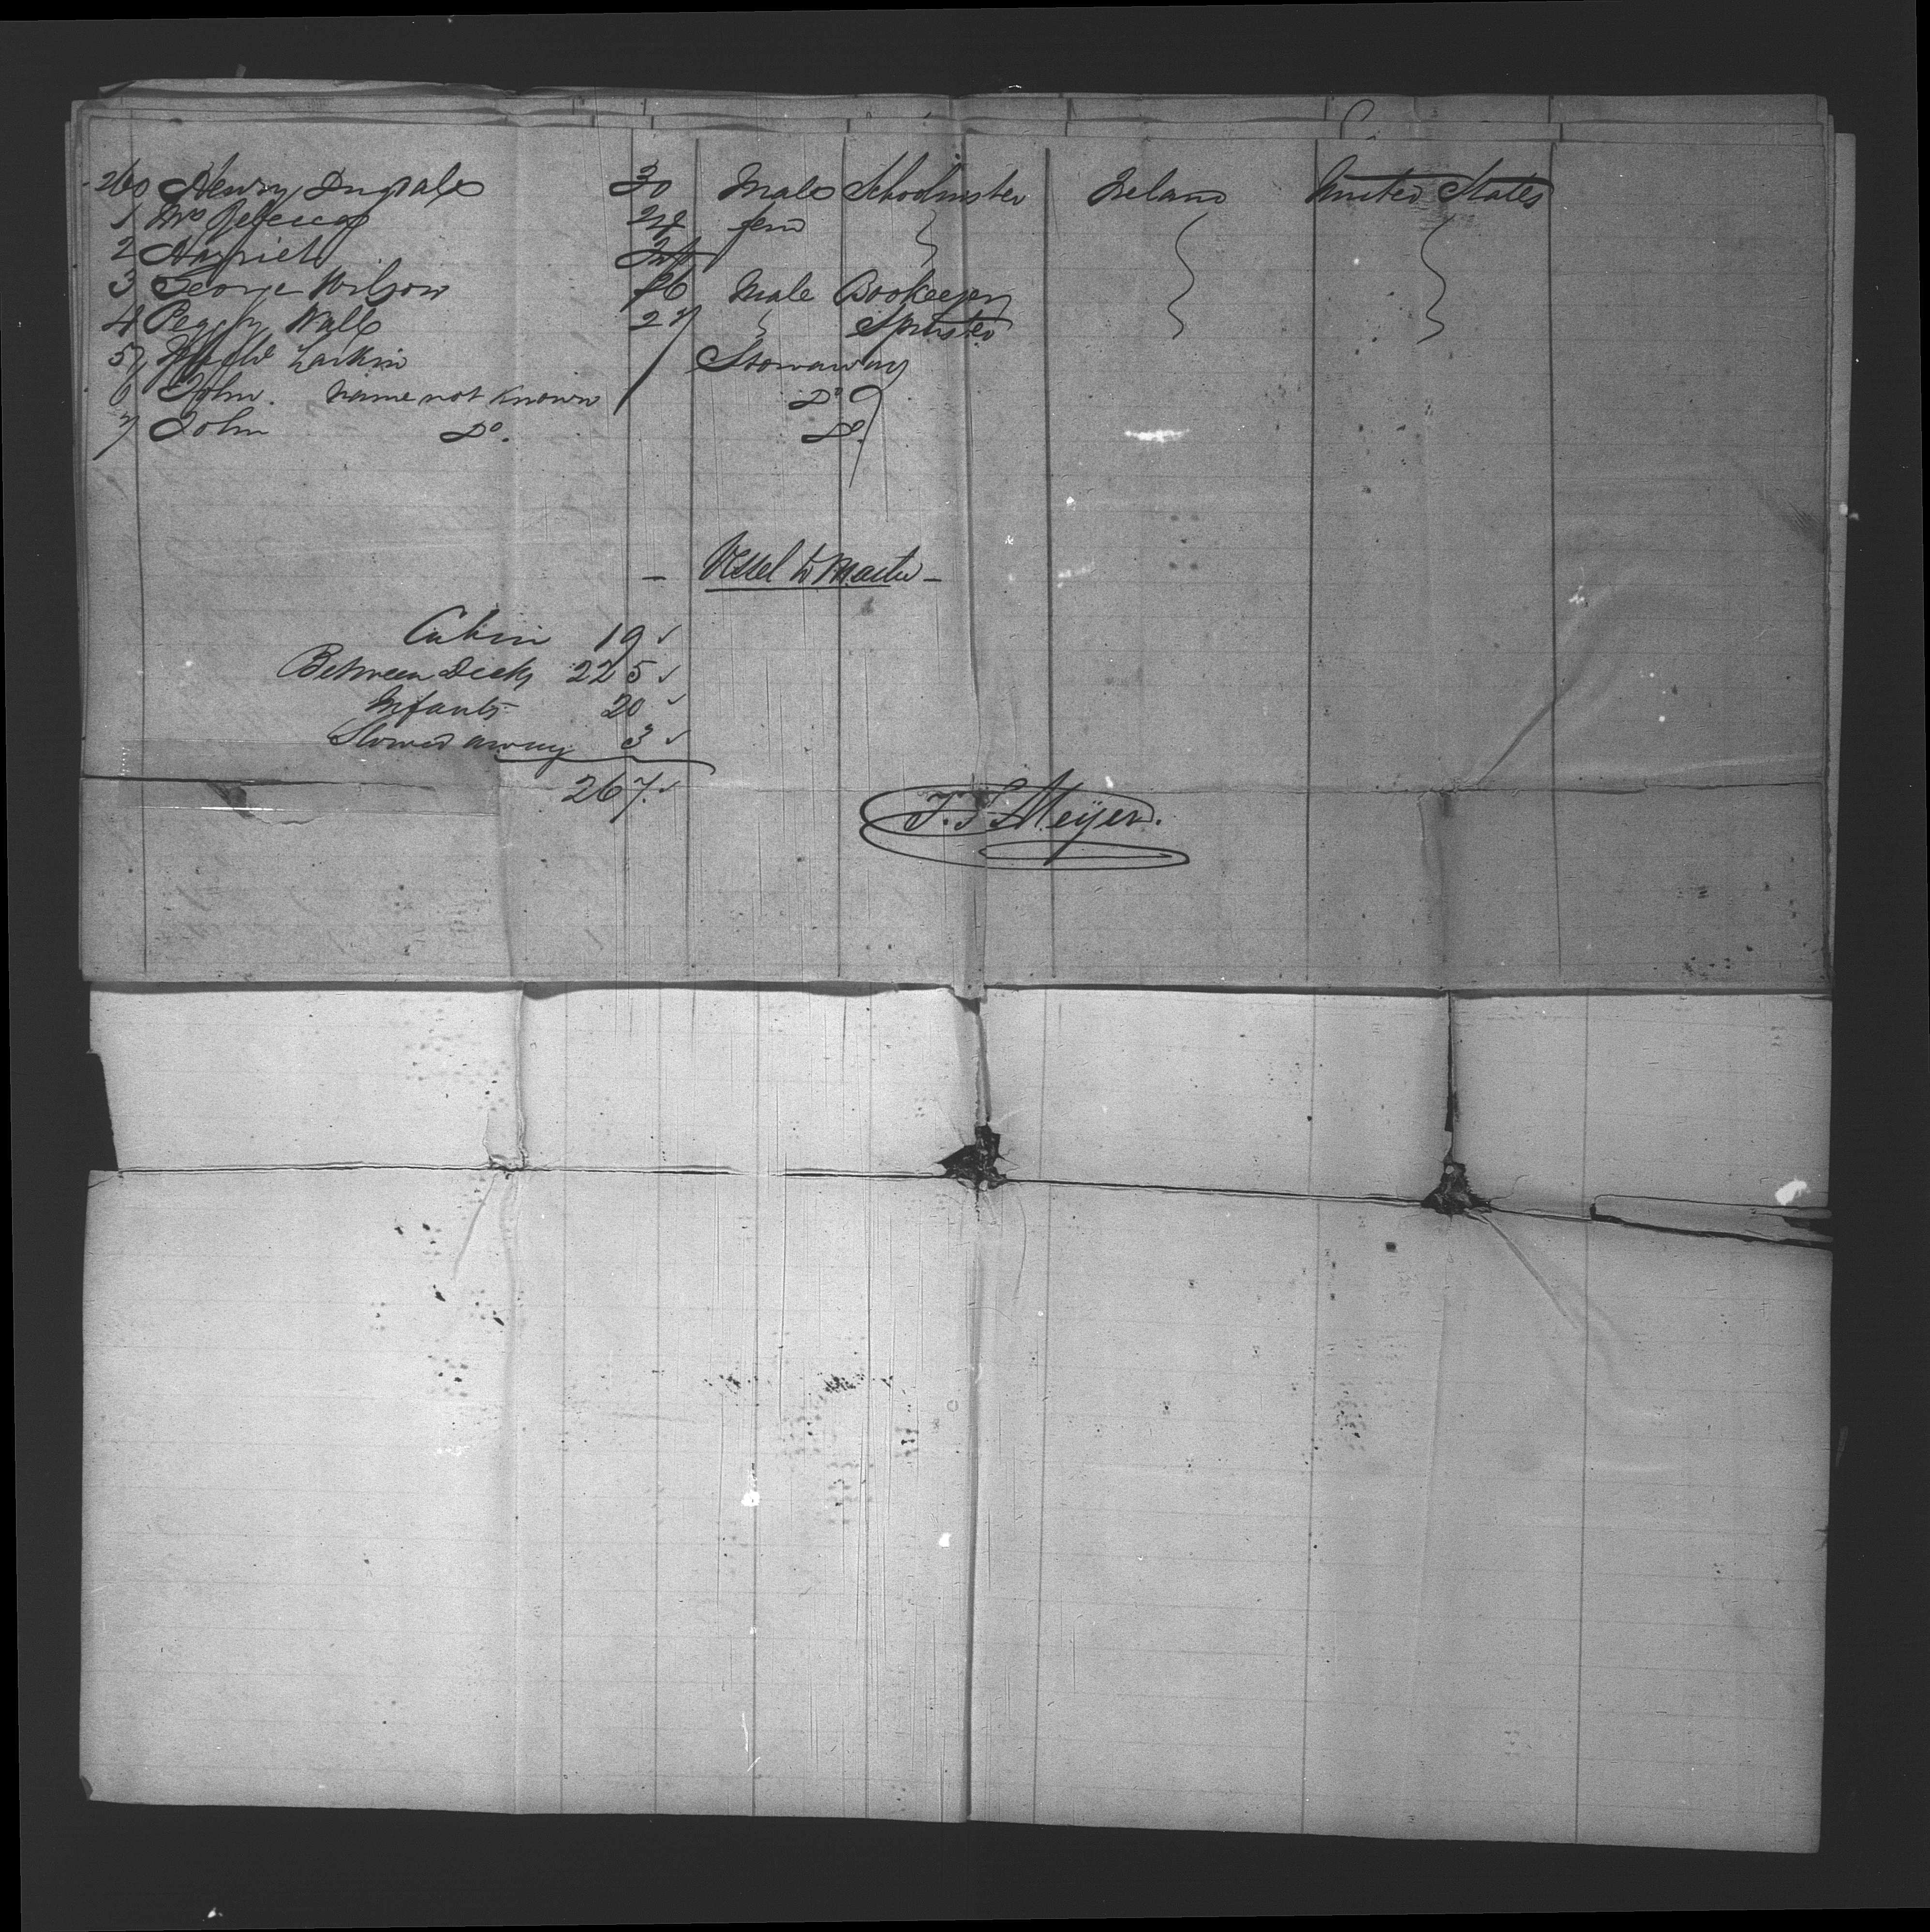 260 Henry Dugdale 30 Male Schoolmster Ireland United States
1 Mrs Rebecca 24 fem
2 Harriet Inft
3 George Wilson 26 Male Bookeeper
4 Peggy Wall 27 Spinster
5 Larkin Stowaway
6 John. name not known Do
7 John Do. Do.
— Vessel & Master —
Cabin 19 ✓
Between Decks 225 ✓
Infants 20 ✓
Stowed away 3 ✓
267. ✓
Meyer.